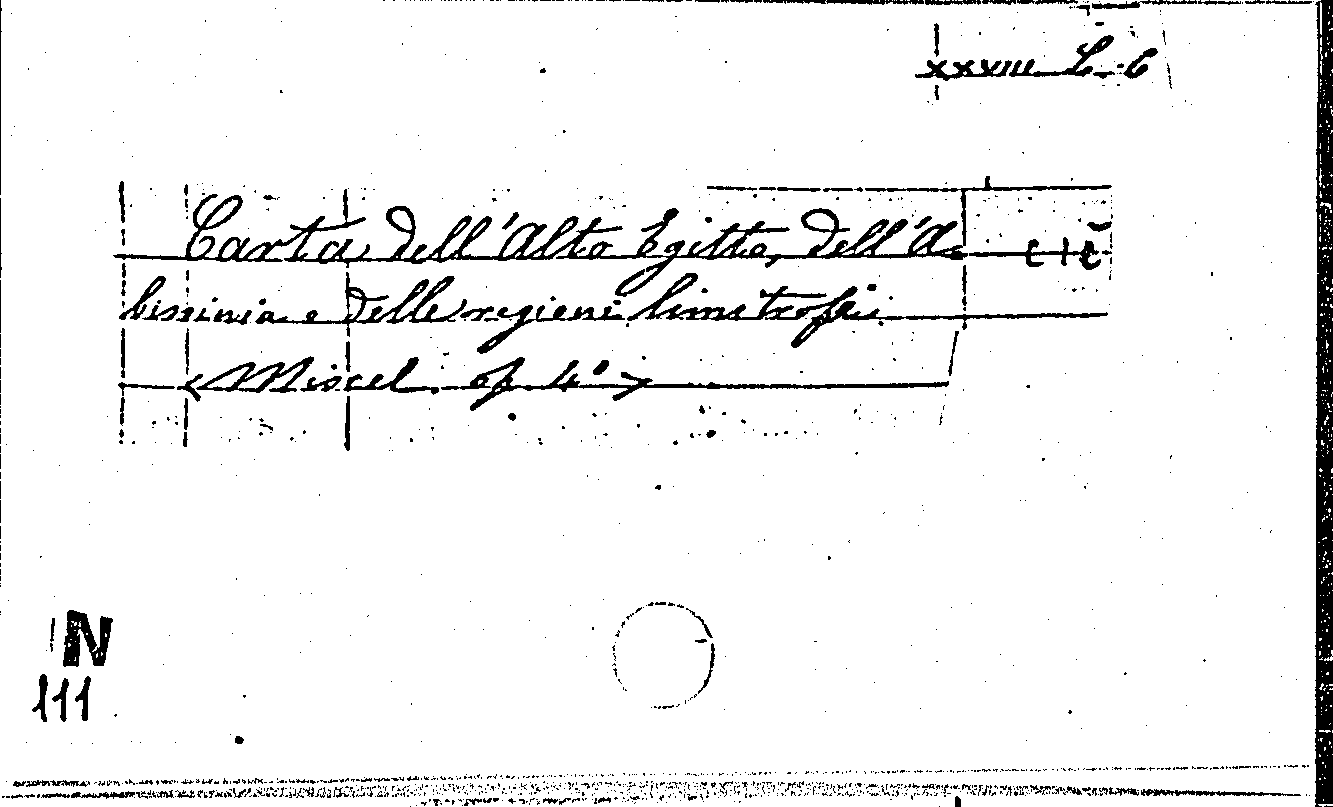 XXVIII L. 6
Carta dell'Alto Egitto, dell'A-
bissinia e delle regioni limitrofi.
(Miscel. op. 4°)
N
111